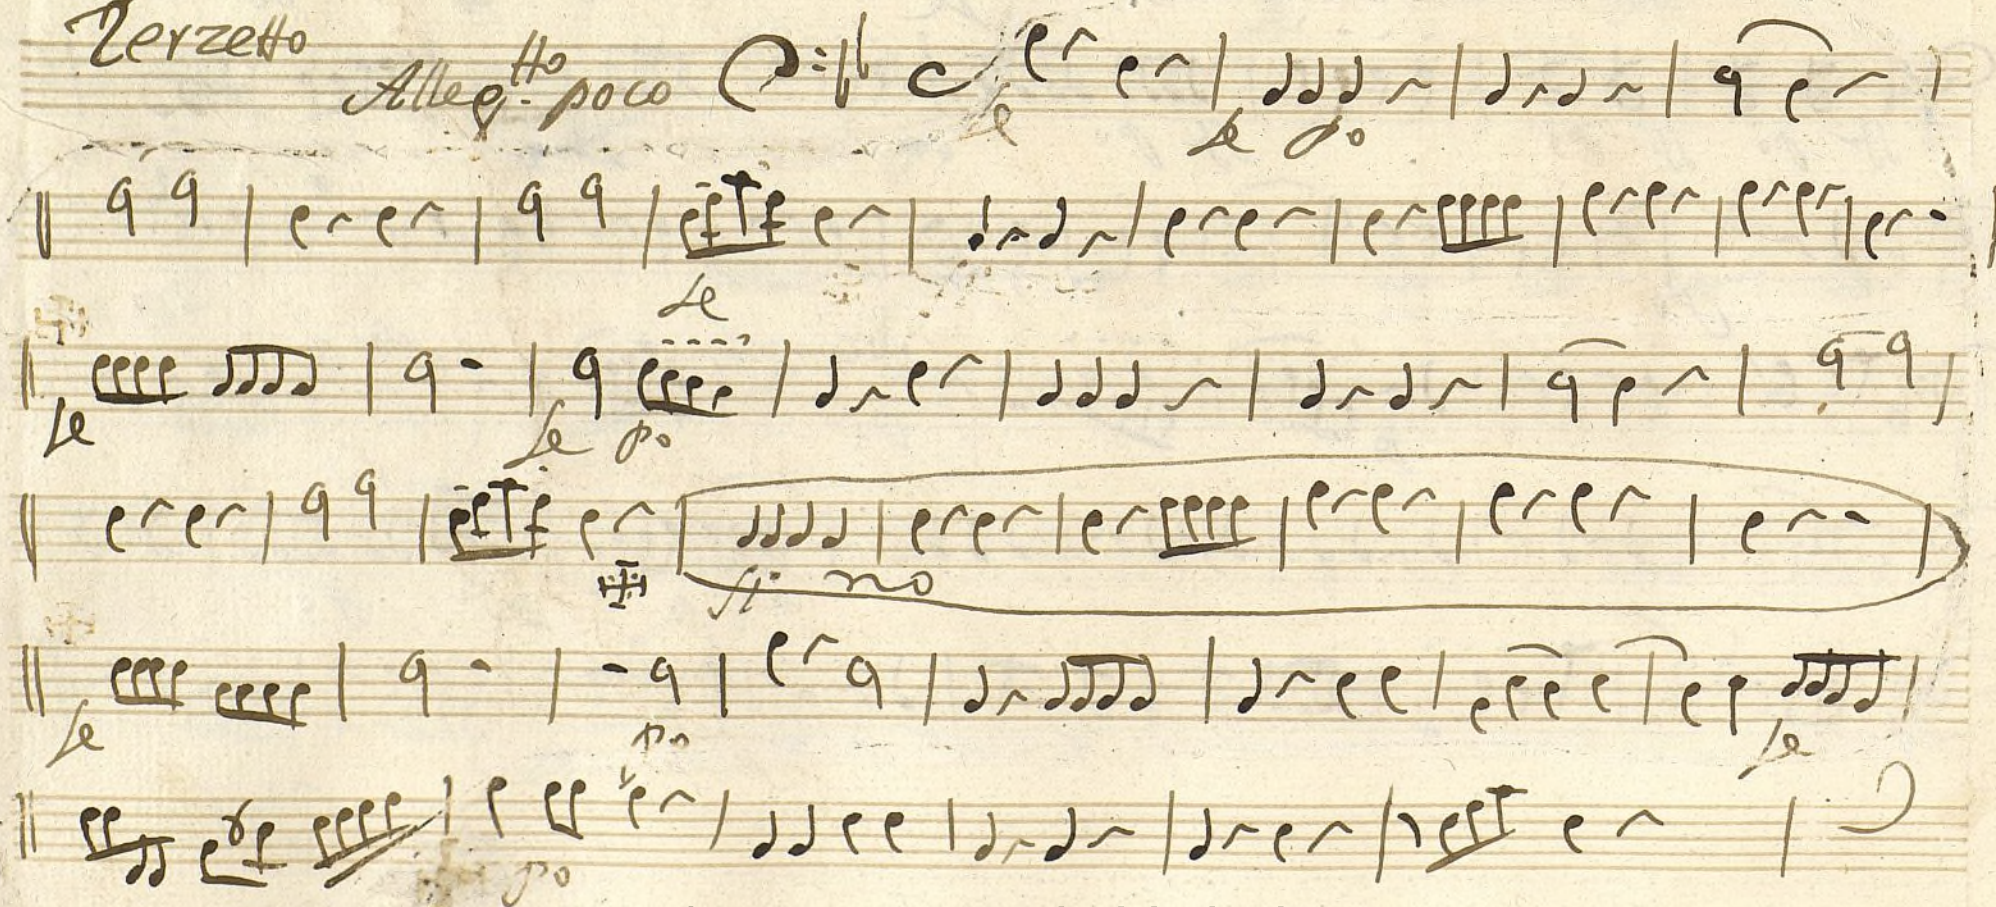 Terzetto
Alleg.tto poco
fe fe po
fe
fe fe po
si no
fe po fe
po